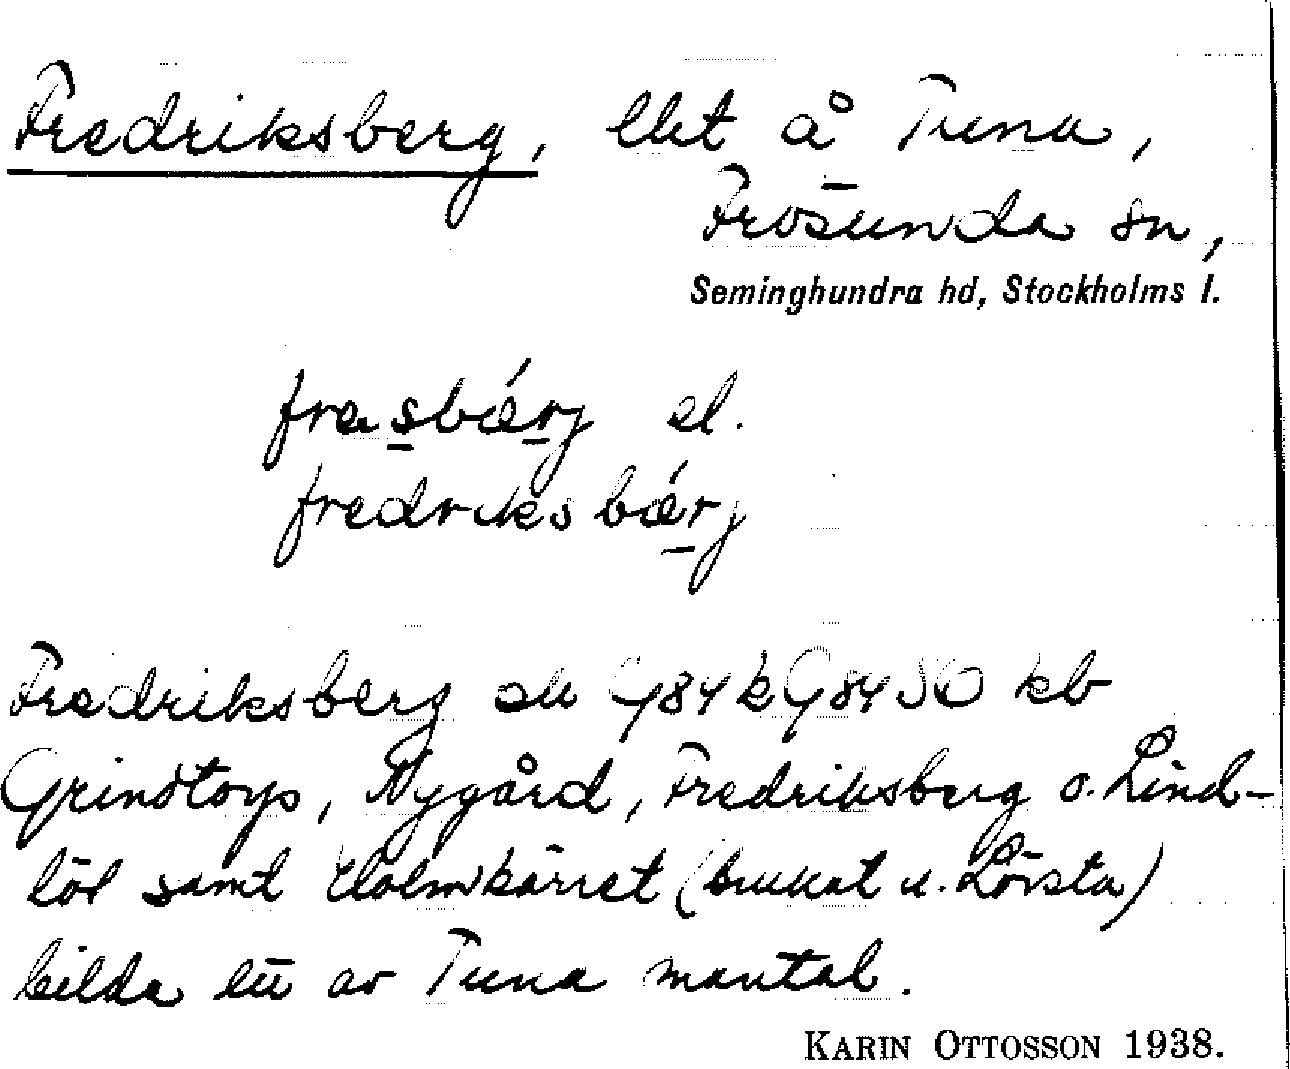 Fredriksberg, lht å Tuna,
Frösunda sn,
Seminghundra hd, Stockholms l.
fræsbǽrj el.
fredriksbǽrj
Fredriksberg G84 k G84 SO kb
Grindtorp, Nygård, Fredriksberg o. Lind-
löt samt Holmkärret (brukat u. Lövsta)
bilda ett av Tuna mantal.
KARIN OTTOSSON 1938.